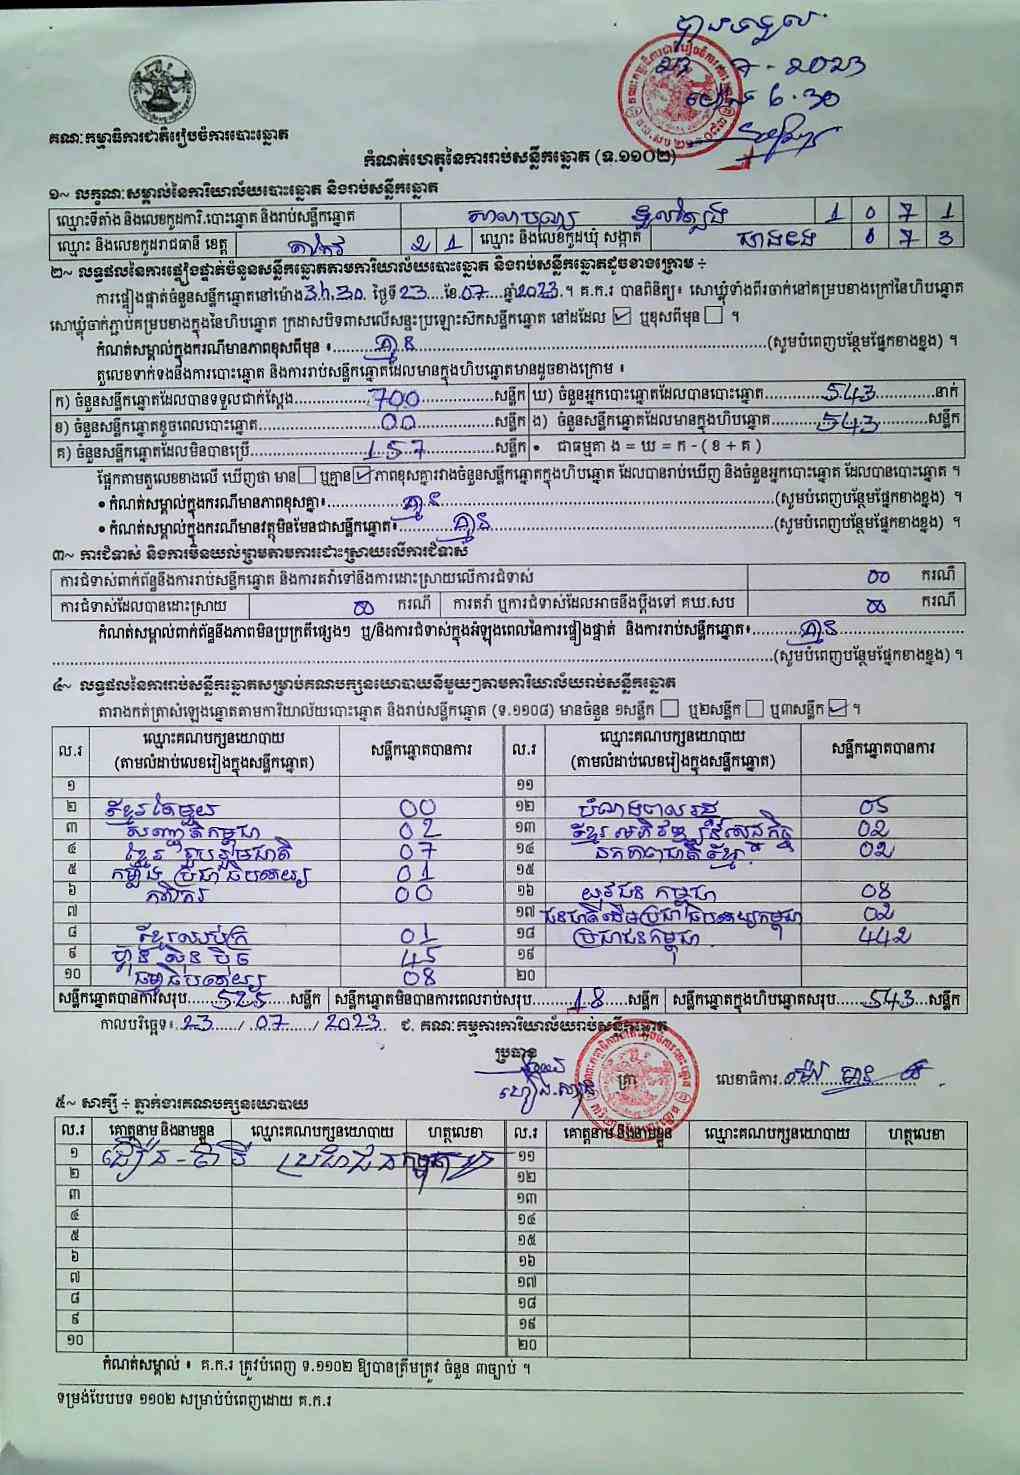 បានទទួល
23 - 7 - 2023
ម៉ោង 6.30
គណៈកម្មាធិការជាតិរៀបចំការបោះឆ្នោត
កំណត់ហេតុនៃការរាប់សន្លឹកឆ្នោត (ទ.១១០២)
១~ លក្ខណៈសម្គាល់នៃការិយាល័យបោះឆ្នោត និងរាប់សន្លឹកឆ្នោត
ឈ្មោះទីតាំង និងលេខកូដការិ.បោះឆ្នោត និងរាប់សន្លឹកឆ្នោត 1 0 7 1
ឈ្មោះ និងលេខកូដរាជធានី ខេត្ត តាកែវ 2 1 ឈ្មោះ និងលេខកូដឃុំ សង្កាត់ 0 7 3
២~ លទ្ធផលនៃការផ្ទៀងផ្ទាត់ចំនួនសន្លឹកឆ្នោតតាមការិយាល័យបោះឆ្នោត និងរាប់សន្លឹកឆ្នោតដូចខាងក្រោម ÷
ការផ្ទៀងផ្ទាត់ចំនួនសន្លឹកឆ្នោតនៅម៉ោង 3h,30 ថ្ងៃទី 23 ខែ 07 ឆ្នាំ 2023 ។ គ.ក.រ បានពិនិត្យ៖ សោឃ្លុំទាំងពីរចាក់នៅគម្របខាងក្រៅនៃហិបឆ្នោត
សោឃ្លុំចាក់ភ្ជាប់គម្របខាងក្នុងនៃហិបឆ្នោត ក្រដាសបិទពាសលើសន្ទះប្រឡោះសិកសន្លឹកឆ្នោត នៅដដែល ☑ ឬខុសពីមុន ☐ ។
កំណត់សម្គាល់ក្នុងករណីមានភាពខុសពីមុន ៖ គ្មាន (សូមបំពេញបន្ថែមផ្នែកខាងខ្នង) ។
តួលេខទាក់ទងនឹងការបោះឆ្នោត និងការរាប់សន្លឹកឆ្នោតដែលមានក្នុងហិបឆ្នោតមានដូចខាងក្រោម ៖
ក) ចំនួនសន្លឹកឆ្នោតដែលបានទទួលជាក់ស្តែង 700 សន្លឹក ឃ) ចំនួនអ្នកបោះឆ្នោតដែលបានបោះឆ្នោត 543 នាក់
ខ) ចំនួនសន្លឹកឆ្នោតខូចពេលបោះឆ្នោត 00 សន្លឹក ង) ចំនួនសន្លឹកឆ្នោតដែលមានក្នុងហិបឆ្នោត 543 សន្លឹក
គ) ចំនួនសន្លឹកឆ្នោតដែលមិនបានប្រើ 157 សន្លឹក • ជាធម្មតា ង = ឃ = ក - ( ខ + គ )
ផ្អែកតាមតួលេខខាងលើ ឃើញថា មាន ☐ ឬគ្មាន ☑ ភាពខុសគ្នារវាងចំនួនសន្លឹកឆ្នោតក្នុងហិបឆ្នោត ដែលបានរាប់ឃើញ និងចំនួនអ្នកបោះឆ្នោត ដែលបានបោះឆ្នោត ។
• កំណត់សម្គាល់ក្នុងករណីមានភាពខុសគ្នា៖ គ្មាន (សូមបំពេញបន្ថែមផ្នែកខាងខ្នង) ។
• កំណត់សម្គាល់ក្នុងករណីមានវត្ថុមិនមែនជាសន្លឹកឆ្នោត៖ គ្មាន (សូមបំពេញបន្ថែមផ្នែកខាងខ្នង) ។
៣~ ការជំទាស់ និងការមិនយល់ព្រមតាមការដោះស្រាយលើការជំទាស់
ការជំទាស់ពាក់ព័ន្ធនឹងការរាប់សន្លឹកឆ្នោត និងការតវ៉ាទៅនឹងការដោះស្រាយលើការជំទាស់ 00 ករណី
ការជំទាស់ដែលបានដោះស្រាយ 00 ករណី ការតវ៉ា ឬការជំទាស់ដែលអាចនឹងប្តឹងទៅ គឃ.សប 00 ករណី
កំណត់សម្គាល់ពាក់ព័ន្ធនឹងភាពមិនប្រក្រតីផ្សេងៗ ឬ/និងការជំទាស់ក្នុងអំឡុងពេលនៃការផ្ទៀងផ្ទាត់ និងការរាប់សន្លឹកឆ្នោត៖ គ្មាន
(សូមបំពេញបន្ថែមផ្នែកខាងខ្នង) ។
៤~ លទ្ធផលនៃការរាប់សន្លឹកឆ្នោតសម្រាប់គណបក្សនយោបាយនីមួយៗតាមការិយាល័យរាប់សន្លឹកឆ្នោត
តារាងកត់ត្រាសំឡេងឆ្នោតតាមការិយាល័យបោះឆ្នោត និងរាប់សន្លឹកឆ្នោត (ទ.១១០៨) មានចំនួន ១សន្លឹក ☐ ឬ២សន្លឹក ☐ ឬ៣សន្លឹក ☑ ។
ល.រ ឈ្មោះគណបក្សនយោបាយ (តាមលំដាប់លេខរៀងក្នុងសន្លឹកឆ្នោត) សន្លឹកឆ្នោតបានការ ល.រ ឈ្មោះគណបក្សនយោបាយ (តាមលំដាប់លេខរៀងក្នុងសន្លឹកឆ្នោត) សន្លឹកឆ្នោតបានការ
១ ១១
២ ខ្មែរតែមួយ 00 ១២ 05
៣ សញ្ជាតិកម្ពុជា 02 ១៣ ខ្មែរអភិវឌ្ឍន៍សេដ្ឋកិច្ច 02
៤ ខ្មែររួបរួមជាតិ 07 ១៤ ឯកភាពជាតិខ្មែរ 02
៥ កម្លាំងប្រជាធិបតេយ្យ 01 ១៥
៦ កសិករ 00 ១៦ យុវជនកម្ពុជា 08
៧ ១៧ ជនជាតិដើមប្រជាធិបតេយ្យកម្ពុជា 02
៨ ខ្មែរឈប់ក្រ 01 ១៨ ប្រជាជនកម្ពុជា 442
៩ ហ្វ៊ុនស៊ិនប៉ិច 45 ១៩
១០ ធម្មាធិបតេយ្យ 08 ២០
សន្លឹកឆ្នោតបានការសរុប 525 សន្លឹក សន្លឹកឆ្នោតមិនបានការពេលរាប់សរុប 18 សន្លឹក សន្លឹកឆ្នោតក្នុងហិបឆ្នោតសរុប 543 សន្លឹក
កាលបរិច្ឆេទ៖ 23 / 07 / 2023 ជ. គណៈកម្មការការិយាល័យរាប់សន្លឹកឆ្នោត
ប្រធាន ត្រា លេខាធិការ
៥~ សាក្សី ÷ ភ្នាក់ងារគណបក្សនយោបាយ
ល.រ គោត្តនាម និងនាមខ្លួន ឈ្មោះគណបក្សនយោបាយ ហត្ថលេខា ល.រ គោត្តនាម និងនាមខ្លួន ឈ្មោះគណបក្សនយោបាយ ហត្ថលេខា
១ ប្រជាជនកម្ពុជា ១១
២ ១២
៣ ១៣
៤ ១៤
៥ ១៥
៦ ១៦
៧ ១៧
៨ ១៨
៩ ១៩
១០ ២០
កំណត់សម្គាល់ ៖ គ.ក.រ ត្រូវបំពេញ ទ.១១០២ ឱ្យបានត្រឹមត្រូវ ចំនួន ៣ច្បាប់ ។
ទម្រង់បែបបទ ១១០២ សម្រាប់បំពេញដោយ គ.ក.រ